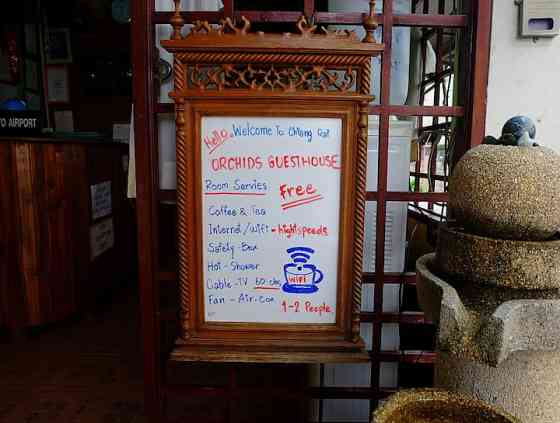 O AIRPORT
Hello, Welcome To Chiang Rai
ORCHIDS GUESTHOUSE
Room Servies
Free
Coffee & Tea
Internet/wifi - hightspeeds
Safety-Box
Hot-Shower
Cable-TV 60-chs
WiFi
Fan - Air-con
1-2 People